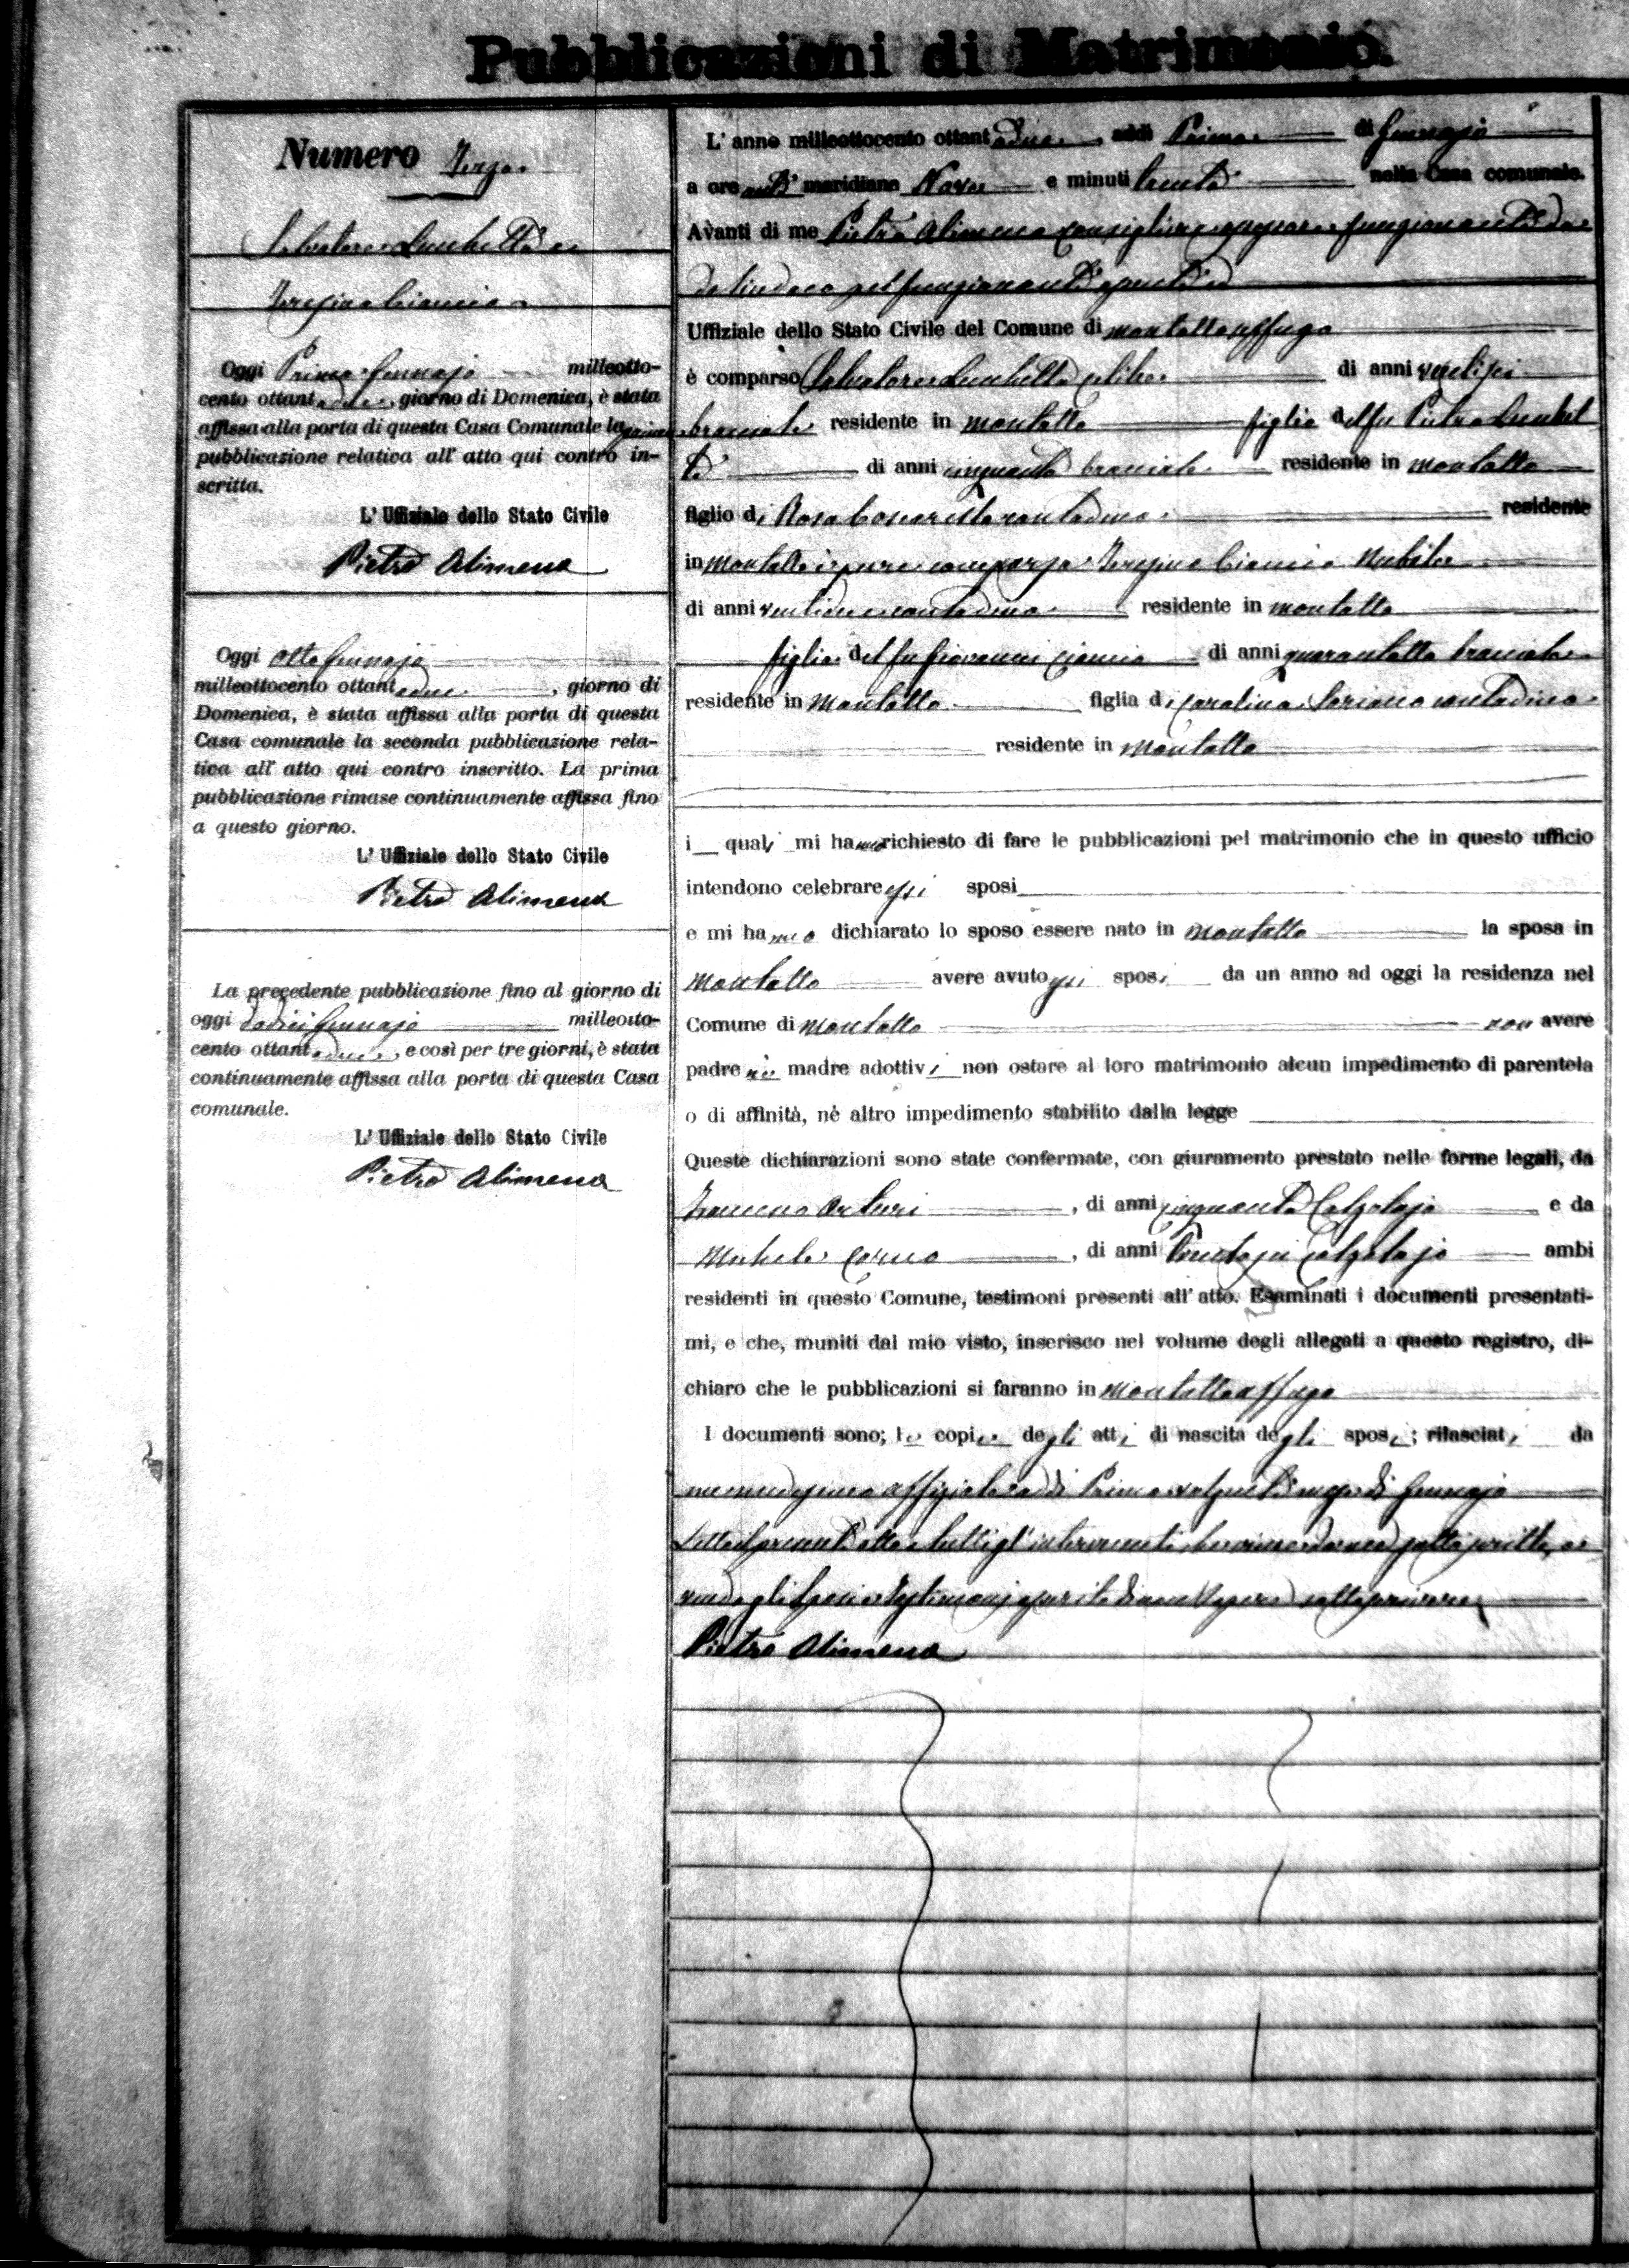 Pubblicazioni di Matrimonio.
Numero Terzo
Salvatore Lucchetta e
Teresina Ciancio
Oggi Primo Gennajo milleotto-
cento ottantadue, giorno di Domenica, è stata
affissa alla porta di questa Casa Comunale la prima
pubblicazione relativa all' atto qui contro in-
scritta.
L' Uffiziale dello Stato Civile
Pietro Alimena
Oggi otto Gennajo
milleottocento ottantadue, giorno di
Domenica, è stata affissa alla porta di questa
Casa comunale la seconda pubblicazione rela-
tiva all' atto qui contro inscritto. La prima
pubblicazione rimase continuamente affissa fino
a questo giorno.
L' Uffiziale dello Stato Civile
Pietro Alimena
La precedente pubblicazione fino al giorno di
oggi dodici Gennajo milleotto-
cento ottantadue, e così per tre giorni, è stata
continuamente affissa alla porta di questa Casa
comunale.
L' Uffiziale dello Stato Civile
Pietro Alimena
L' anno milleottocento ottantadue, addì Primo di Gennajo
a ore anti meridiane Nove e minuti trenta nella Casa comunale.
Avanti di me Pietro Alimena Consigliere funzionante da
da Sindaco
Uffiziale dello Stato Civile del Comune di Montalto Uffugo
è comparso Salvatore Lucchetta celibe di anni ventisei
bracciale residente in Montalto figlio del fu Pietro Lucchet
ta di anni cinquanta bracciale residente in Montalto
figlio di Rosa contadina residente
in Montalto è pure comparsa Teresina Ciancio Nubile
di anni ventidue contadina residente in Montalto
figlia del fu Giovanni Ciancio di anni quarantotto bracciale
residente in Montalto figlia di Carolina Soriano contadina
residente in Montalto
i quali mi hanno richiesto di fare le pubblicazioni pel matrimonio che in questo ufficio
intendono celebrare essi sposi
e mi hanno dichiarato lo sposo essere nato in Montalto la sposa in
Montalto avere avuto essi sposi da un anno ad oggi la residenza nel
Comune di Montalto non avere
padre nè madre adottivi non ostare al loro matrimonio alcun impedimento di parentela
o di affinità, nè altro impedimento stabilito dalla legge
Queste dichiarazioni sono state confermate, con giuramento prestato nelle forme legali, da
Arturi, di anni cinquanta Calzolajo e da
Michele, di anni Calzolajo ambi
residenti in questo Comune, testimoni presenti all' atto. Esaminati i documenti presentati-
mi, e che, muniti dal mio visto, inserisco nel volume degli allegati a questo registro, di-
chiaro che le pubblicazioni si faranno in Montalto Uffugo
I documenti sono; le copie degli atti di nascita degli sposi; rilasciati da
me medesimo uffiziale addi Primo mese di Gennajo
Letto il presente atto a tutti gl' intervenuti
Pietro Alimena